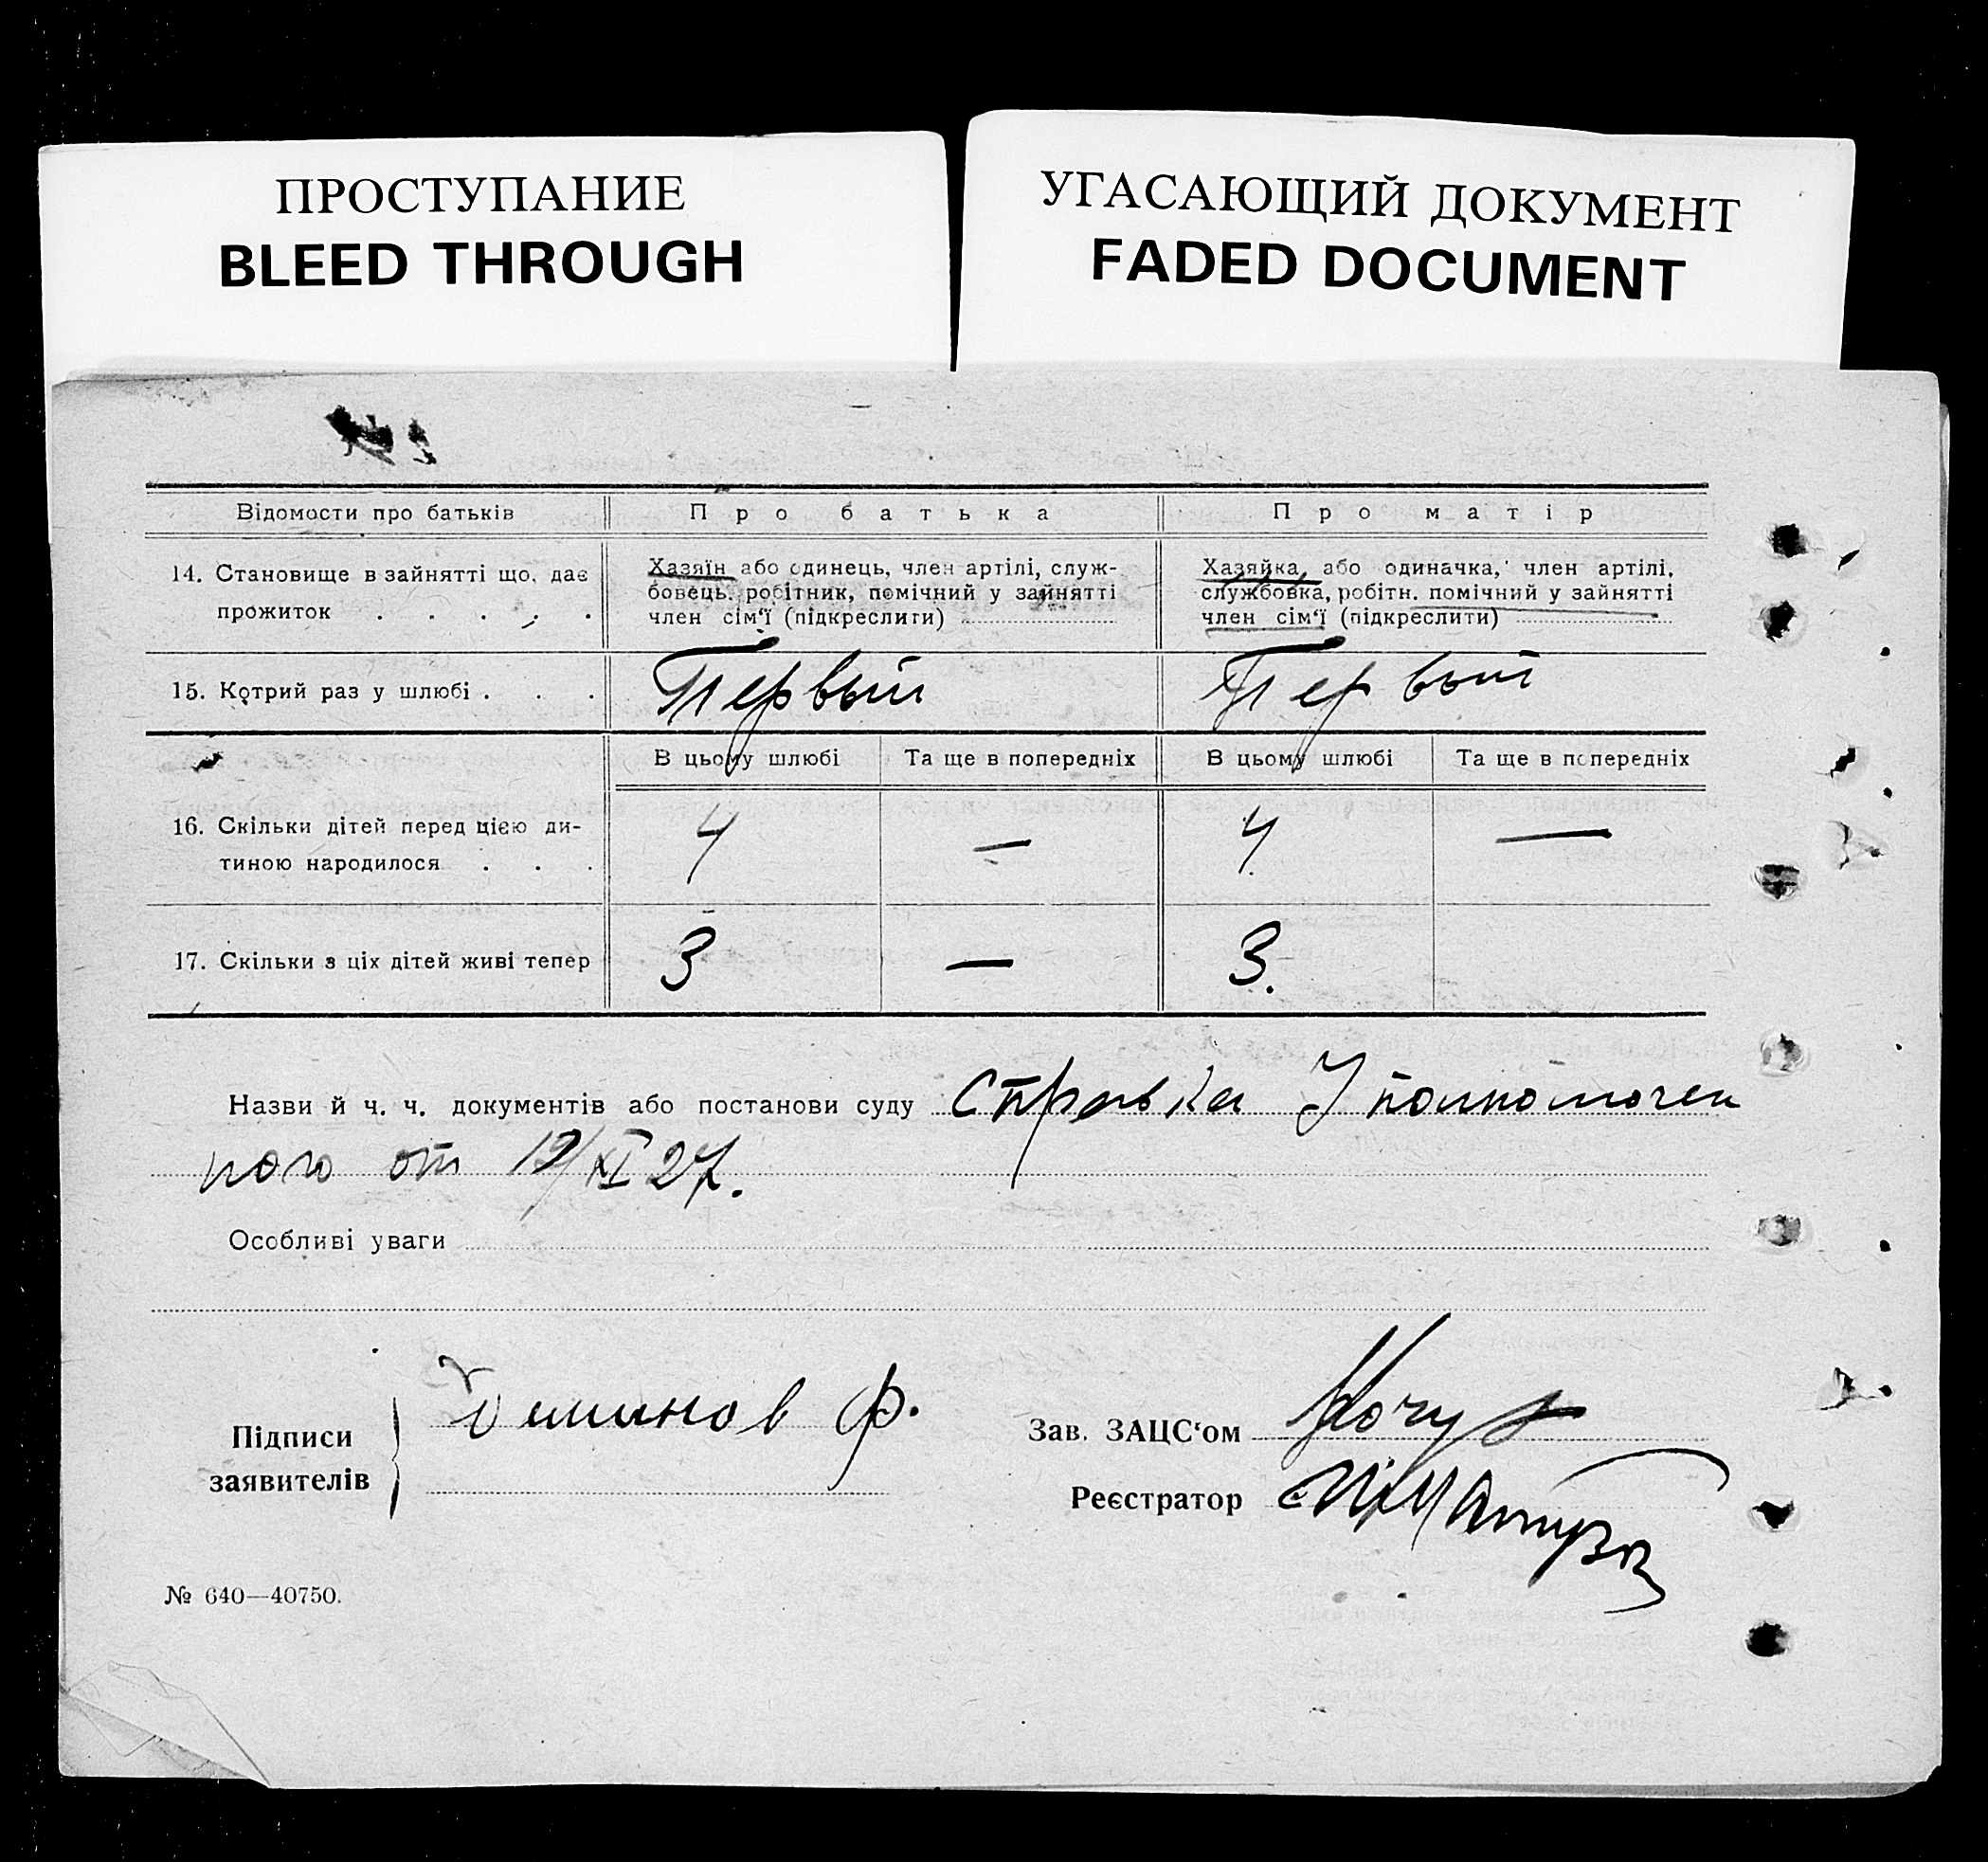 ПРОСТУПАНИЕ
BLEED THROUGH
УГАСАЮЩИЙ ДОКУМЕНТ
FADED DOCUMENT
Відомости про батьків
Про батька
Про матір
14. Становище в зайнятті що, дає
прожиток . . . . .
Хазяїн або одинець, член артілі, служ-
бовець, робітник, помічний у зайнятті
член сім‘ї (підкреслити)
Хазяйка, або одиначка, член артілі,
службовка, робітн. помічний у зайнятті
член сім‘ї (підкреслити)
15. Котрий раз у шлюбі . . .
Первый
Первый
В цьому шлюбі
Та ще в попередніх
В цьому шлюбі
Та ще в попередніх
16. Скільки дітей перед цією ди-
тиною народилося . . .
4 — 4 —
17. Скільки з ціх дітей живі тепер
3 — 3.
Назви й ч. ч. документів або постанови суду Справка Уполномочен
ного от 19/XI 27.
Особливі уваги
Підписи
заявителів
Ф.
Зав. ЗАЦС‘ом
Реєстратор
№ 640—40750.